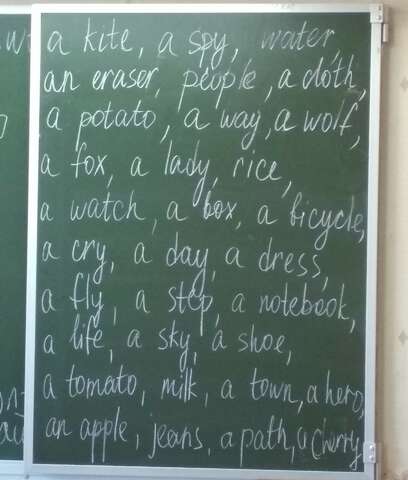 a kite, a spy, water,
an eraser, people, a cloth,
a potato, a way, a wolf,
a fox, a lady, rice,
a watch, a box, a bicycle,
a cry, a day, a dress,
a fly, a step, a notebook,
a life, a sky, a shoe,
a tomato, milk, a town, a hero,
an apple, jeans, a path, a cherry